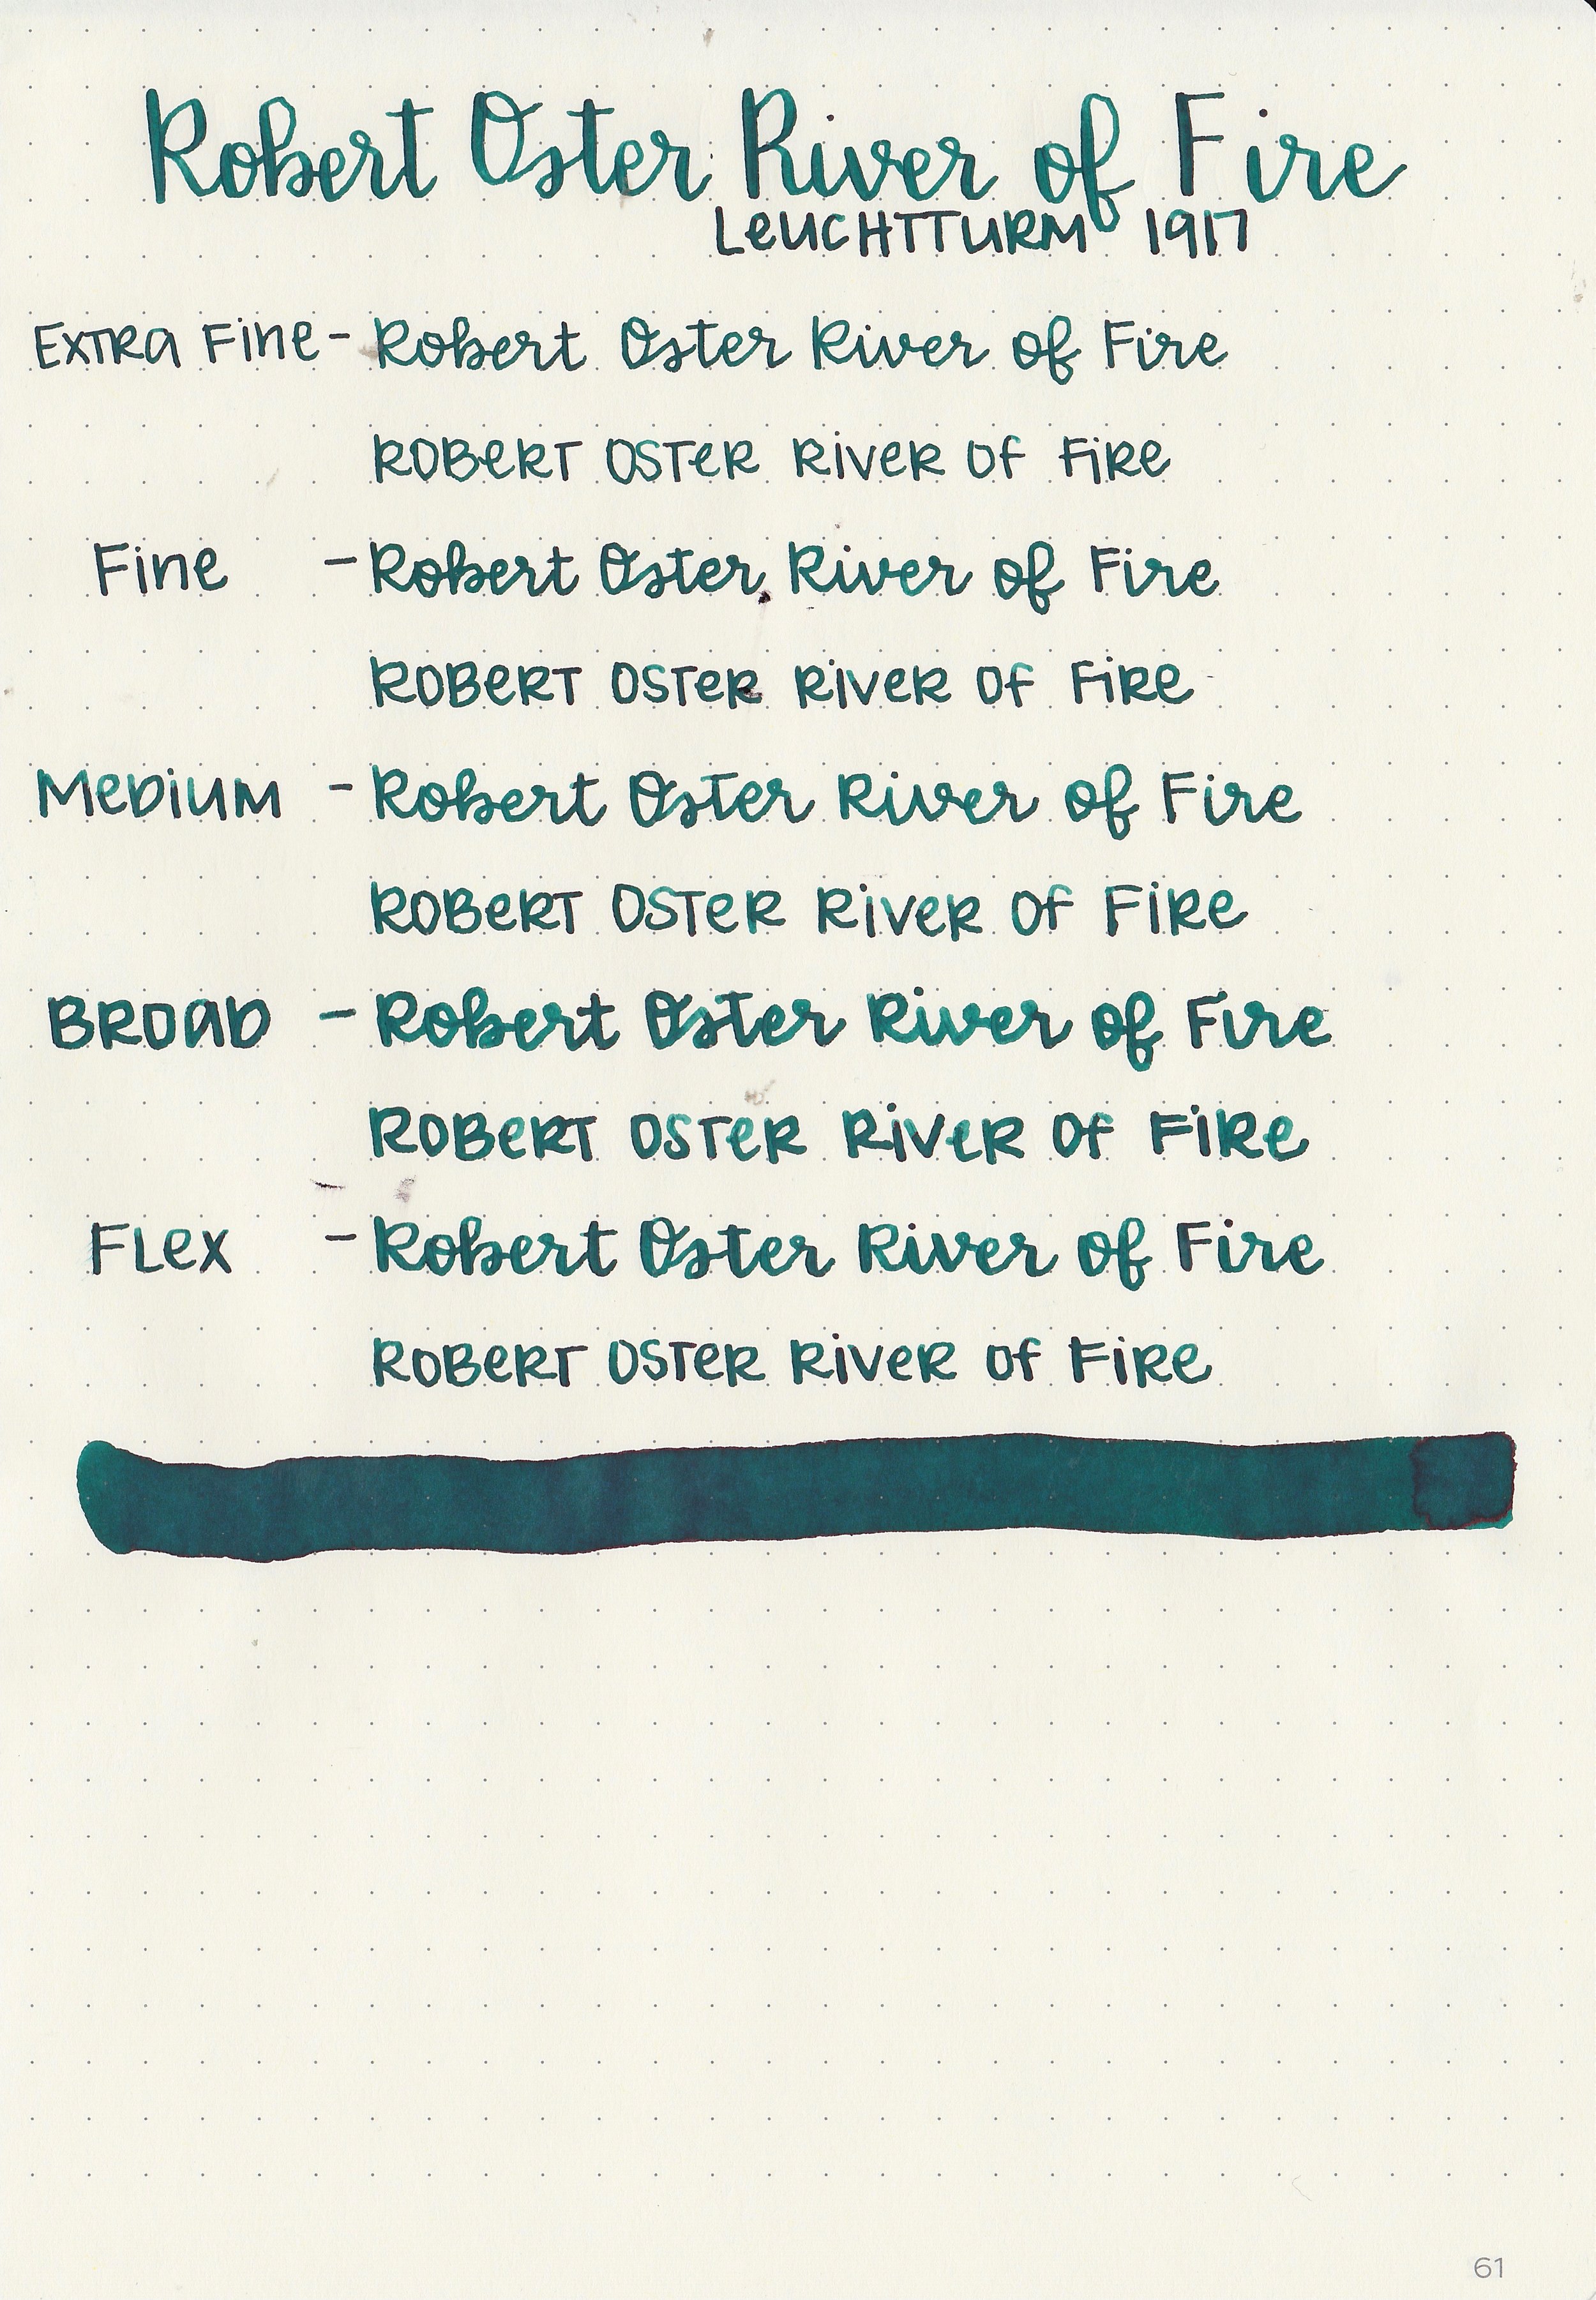 Robert Oster River of Fire
LeUCHTTURM 1917
ExTRa Fine - Robert Oster River of Fire
ROBeRT OSTeR RiveR Of FiRe
Fine - Robert Oster River of Fire
ROBeRT OSTeR RiveR Of FiRe
MeDiUM - Robert Oster River of Fire
ROBeRT OSTeR RiveR Of FiRe
BROaD - Robert Oster River of Fire
ROBeRT OSTeR RiveR Of FiRe
FLex - Robert Oster River of Fire
ROBeRT OSTeR RiveR Of FiRe
61